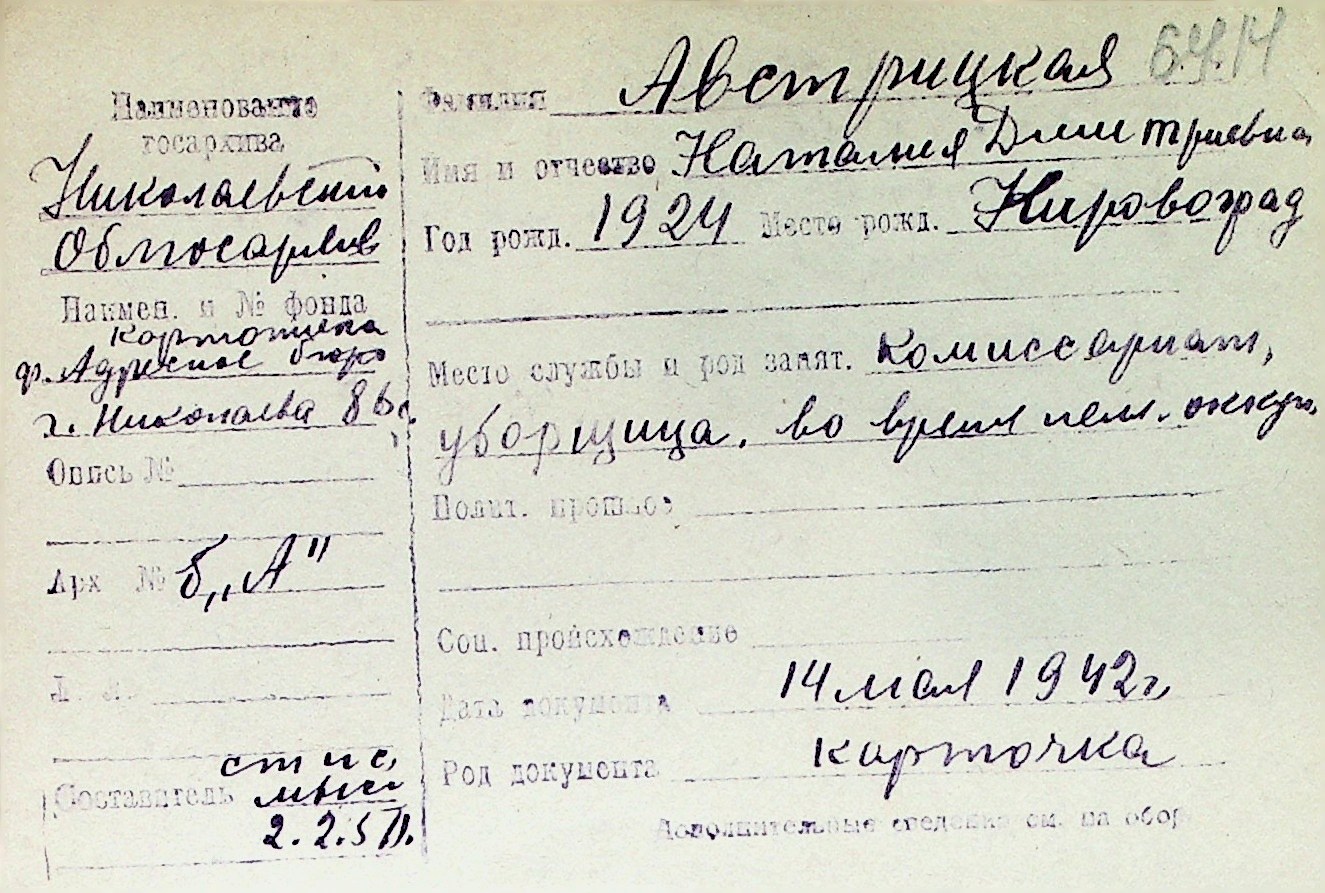 Наименование
госархива
Николаевский
Облгосархив
Наимен. и № фонда
картотека
ф. Адресное бюро
г. Николаева
Опись №
Арх №
"А"
Л. л.
Составитель
2.2.5
Фамилия Австрицкая
Имя и отчество Наталия Дмитриевна
Год рожд. 1924 Место рожд. Кировоград
Место службы и род занят. Комиссариат,
уборщица, во время нем. оккуп.
Полит. прошлое
Соц. происхождение
Дата документа 14 мая 1942 г.
Род документа карточка
Дополнительные сведения см. на обор.